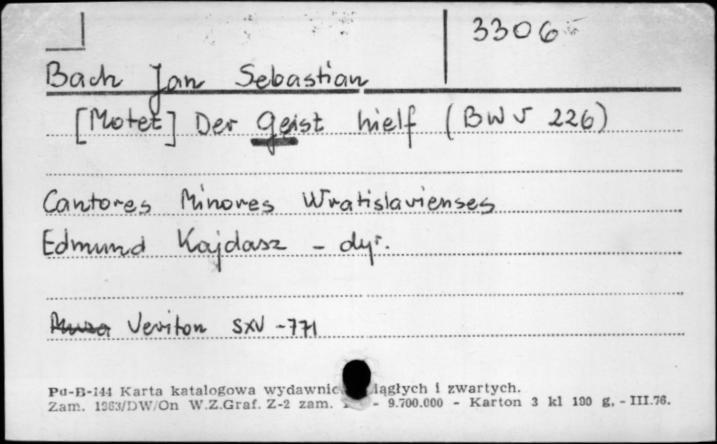 3306
Bach Jan Sebastian
[Motet] Der Geist hielf (BWV 226)
Cantores Minores Wratislavienses
Edmund Kajdasz - dyr.
Muza Veriton SXV-771
Pu-B-144 Karta katalogowa wydawnic iągłych i zwartych.
Zam. 1963/DW/On W.Z.Graf. Z-2 zam. - 9.700.000 - Karton 3 kl 190 g. - III.76.